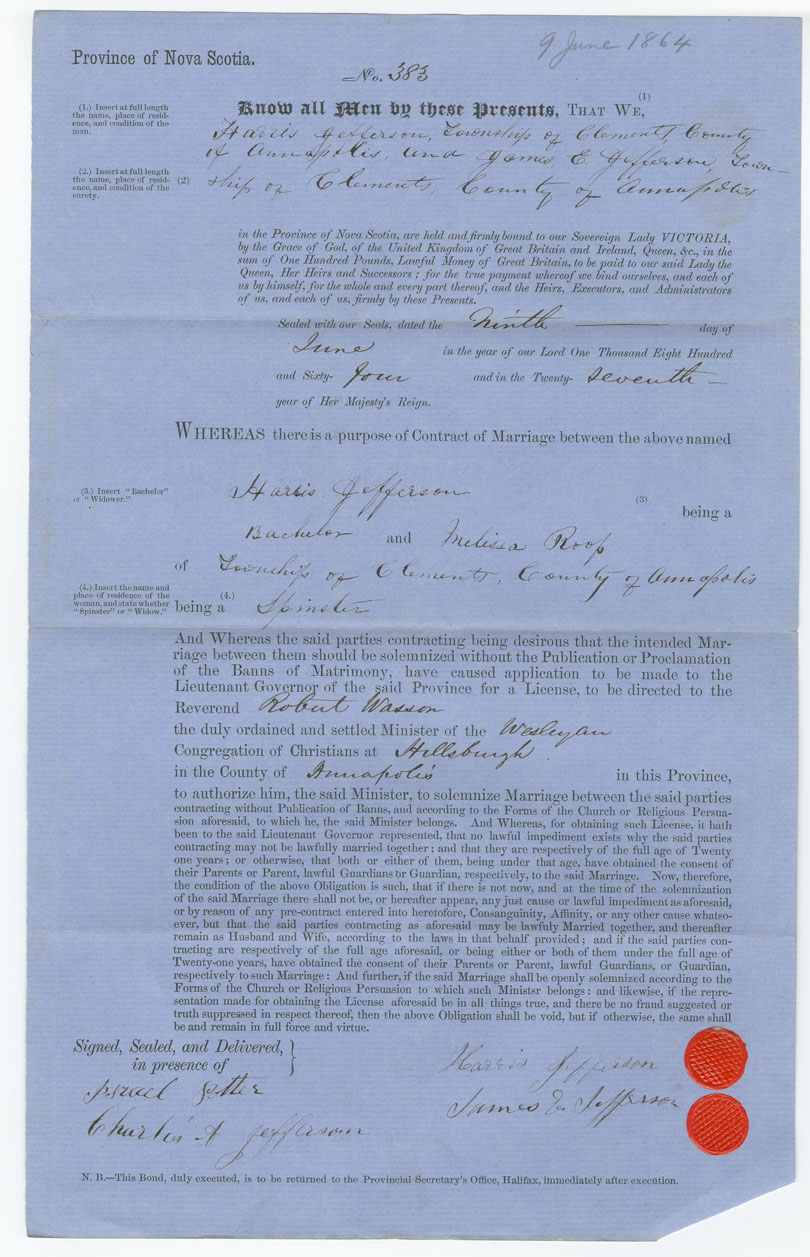 9 June 1864
Province of Nova Scotia.
No. 383
(1.) Insert at full length
the name, place of resid-
ence, and condition of the
man.
Know all Men by these Presents, THAT WE, (1)
Harris Jefferson, Township of Clements, County
of Annapolis, and James E. Jefferson, Town-
(2.) Insert at full length
the name, place of resid-
ence, and condition of the
surety.
(2) ship of Clements County of Annapolis
in the Province of Nova Scotia, are held and firmly bound to our Sovereign Lady VICTORIA,
by the Grace of God, of the United Kingdom of Great Britain and Ireland, Queen, &c., in the
sum of One Hundred Pounds, Lawful Money of Great Britain, to be paid to our said Lady the
Queen, Her Heirs and Successors; for the true payment whereof we bind ourselves, and each of
us by himself, for the whole and every part thereof, and the Heirs, Executors, and Administrators
of us, and each of us, firmly by these Presents.
Sealed with our Seals, dated the Ninth day of
June in the year of our Lord One Thousand Eight Hundred
and Sixty- four and in the Twenty- seventh
year of Her Majesty's Reign.
WHEREAS there is a purpose of Contract of Marriage between the above named
(3.) Insert "Bachelor"
or "Widower."
Harris Jefferson (3) being a
Bachelor and Melissa Roop
of Township of Clements, County of Annapolis
(4.) Insert the name and
place of residence of the
woman, and state whether
"Spinster" or "Widow."
being a (4.) Spinster
And Whereas the said parties contracting being desirous that the intended Mar-
riage between them should be solemnized without the Publication or Proclamation
of the Banns of Matrimony, have caused application to be made to the
Lieutenant Governor of the said Province for a License, to be directed to the
Reverend Robert Wasson
the duly ordained and settled Minister of the Wesleyan
Congregation of Christians at Hillsburgh
in the County of Annapolis in this Province,
to authorize him, the said Minister, to solemnize Marriage between the said parties
contracting without Publication of Banns, and according to the Forms of the Church or Religious Persua-
sion aforesaid, to which he, the said Minister belongs. And Whereas, for obtaining such License, it hath
been to the said Lieutenant Governor represented, that no lawful impediment exists why the said parties
contracting may not be lawfully married together; and that they are respectively of the full age of Twenty
one years; or otherwise, that both or either of them, being under that age, have obtained the consent of
their Parents or Parent, lawful Guardians or Guardian, respectively, to the said Marriage. Now, therefore,
the condition of the above Obligation is such, that if there is not now, and at the time of the solemnization
of the said Marriage there shall not be, or hereafter appear, any just cause or lawful impediment as aforesaid,
or by reason of any pre-contract entered into heretofore, Consanguinity, Affinity, or any other cause whatso-
ever, but that the said parties contracting as aforesaid may be lawfuly Married together, and thereafter
remain as Husband and Wife, according to the laws in that behalf provided; and if the said parties con-
tracting are respectively of the full age aforesaid, or being either or both of them under the full age of
Twenty-one years, have obtained the consent of their Parents or Parent, lawful Guardians, or Guardian,
respectively to such Marriage: And further, if the said Marriage shall be openly solemnized according to the
Forms of the Church or Religious Persuasion to which such Ministsr belongs: and likewise, if the repre-
sentation made for obtaining the License aforesaid be in all things true, and there be no fraud suggested or
truth suppressed in respect thereof, then the above Obligation shall be void, but if otherwise, the same shall
be and remain in full force and virtue.
Signed, Sealed, and Delivered,
in presence of
Israel Potter
Charles A Jefferson
Harris Jefferson
James E. Jefferson
N. B.—This Bond, duly executed, is to be returned to the Provincial Secretary's Office, Halifax, immediately after execution.